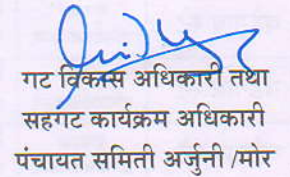 गट विकास अधिकारी तथा
सहगट कार्यक्रम अधिकारी
पंचायत समिती अर्जुनी /मोर